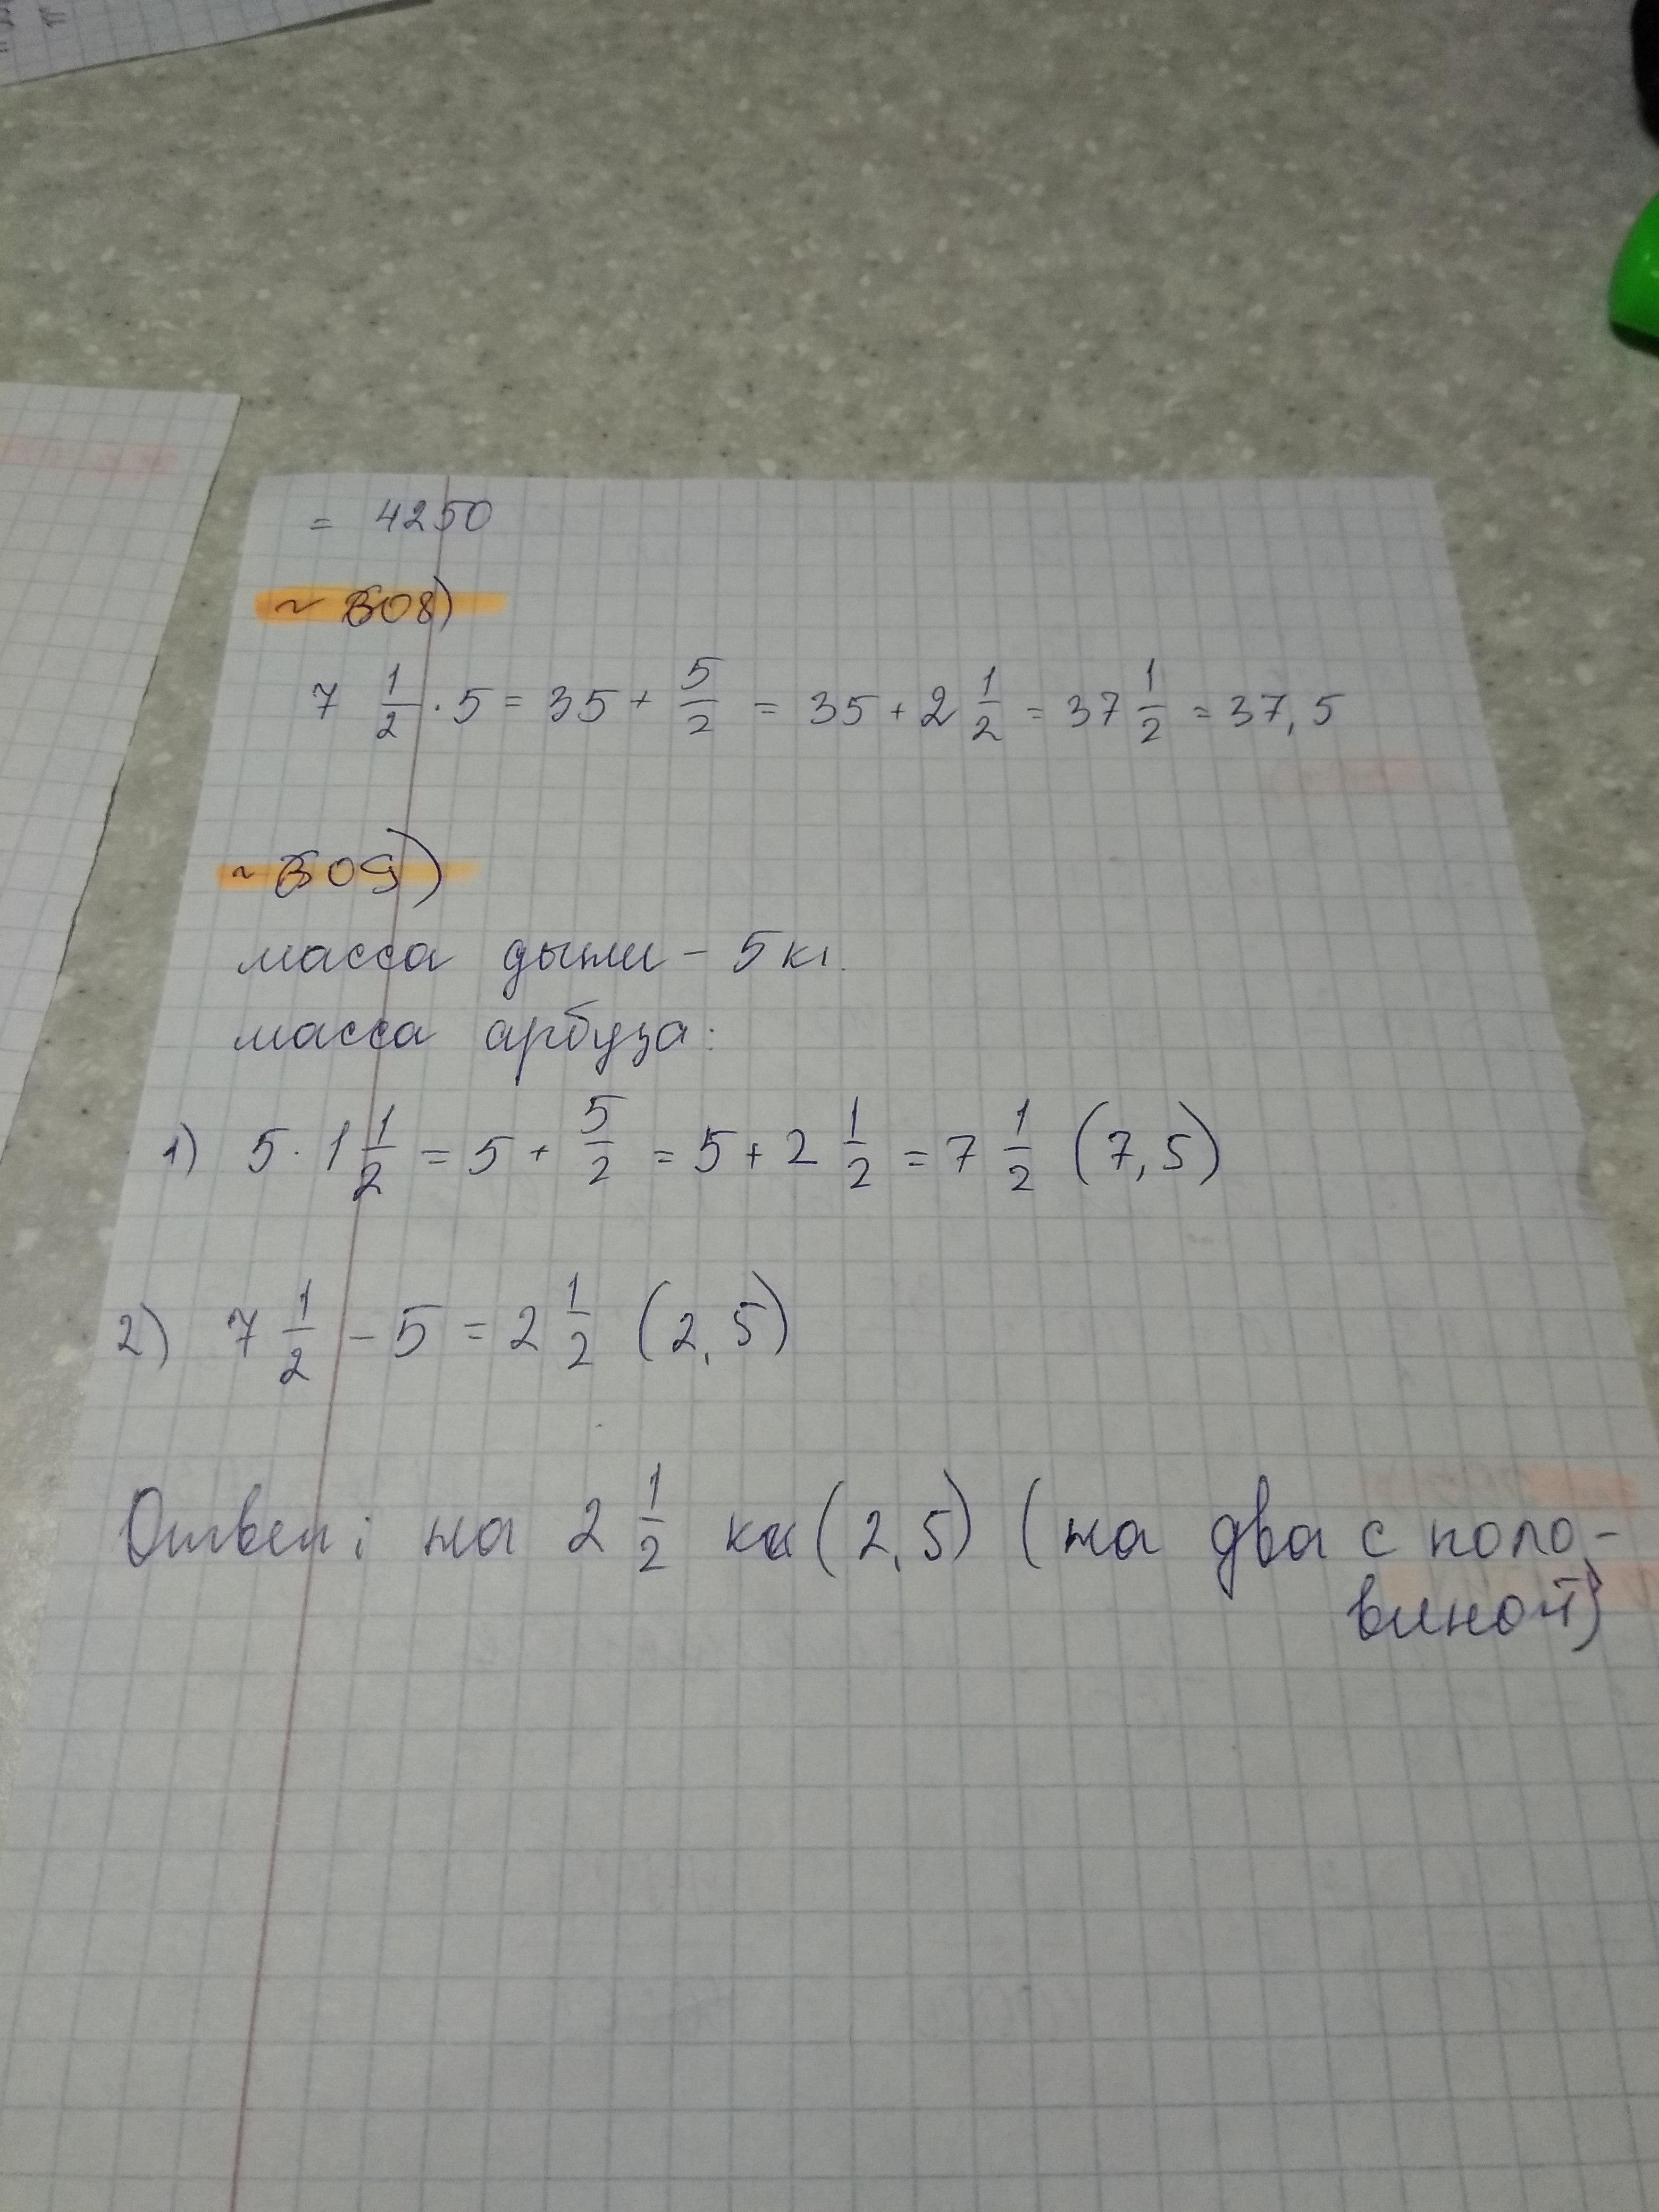 = 4250
~ 508)
7 1/2 · 5 = 35 + 5/2 = 35 + 2 1/2 = 37 1/2 = 37,5
~ 509)
масса дыни – 5 кг.
масса арбуза:
1) 5 · 1 1/2 = 5 + 5/2 = 5 + 2 1/2 = 7 1/2 (7,5)
2) 7 1/2 – 5 = 2 1/2 (2,5)
Ответ: на 2 1/2 кг (2,5) (на два с поло-
виной)